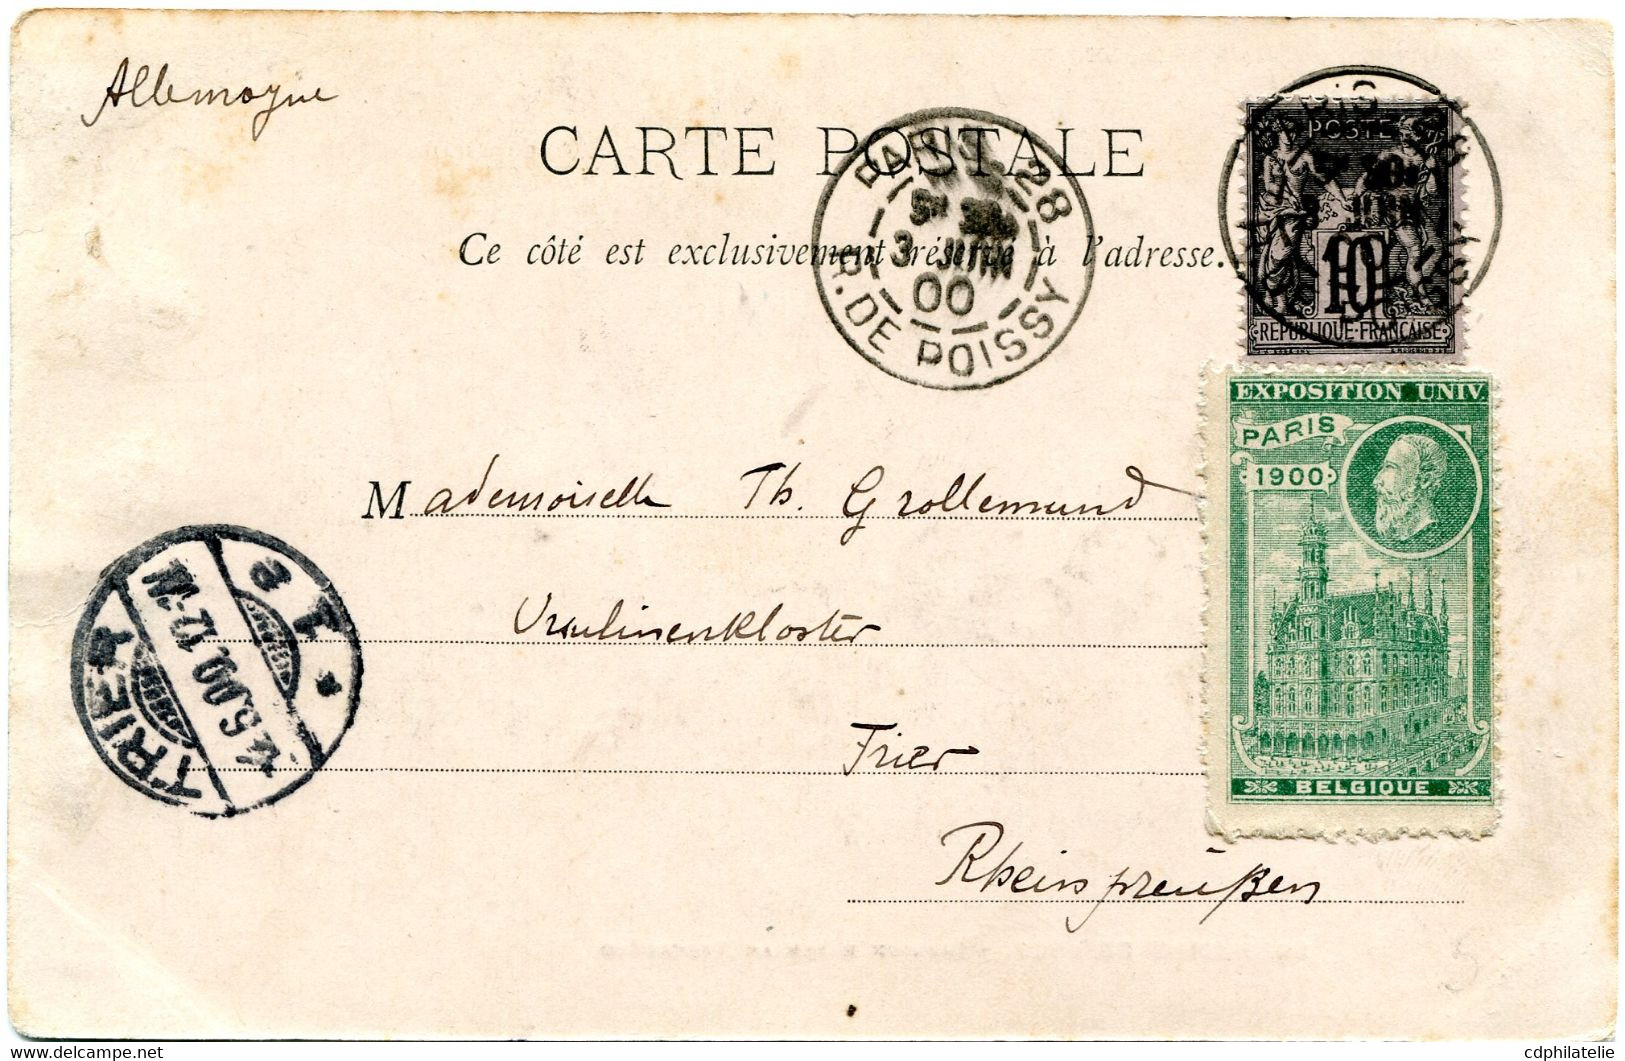 Allemagne
CARTE POSTALE
Ce côté est exclusivement réservé à l'adresse.
PARIS 28
3 JUIN
00
R. DE POISSY
POSTE
10
REPUBLIQUE FRANÇAISE
EXPOSITION UNIV.
PARIS
1900
BELGIQUE
Mademoiselle Th. Grollemund
Ursulinenkloster
Trier
Rheinpreußen
TRIER
cdphilatelie
delcampe.net